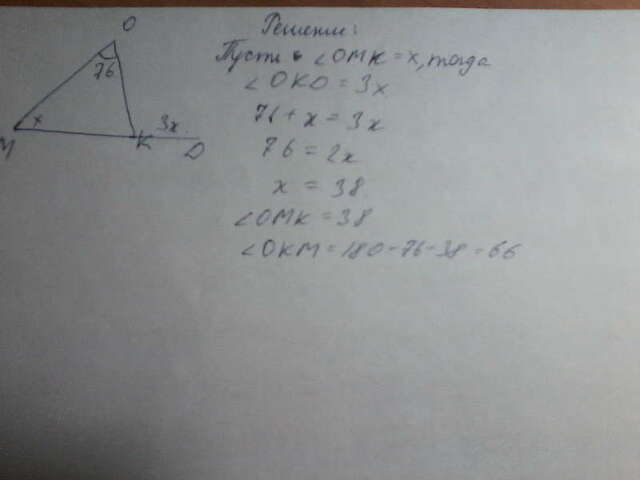 Решение:
Пусть ∠OMK = x, тогда
∠OKD = 3x
76 + x = 3x
76 = 2x
x = 38
∠OMK = 38
∠OKM = 180 - 76 - 38 = 66
O
76
x
3x
M
K
D